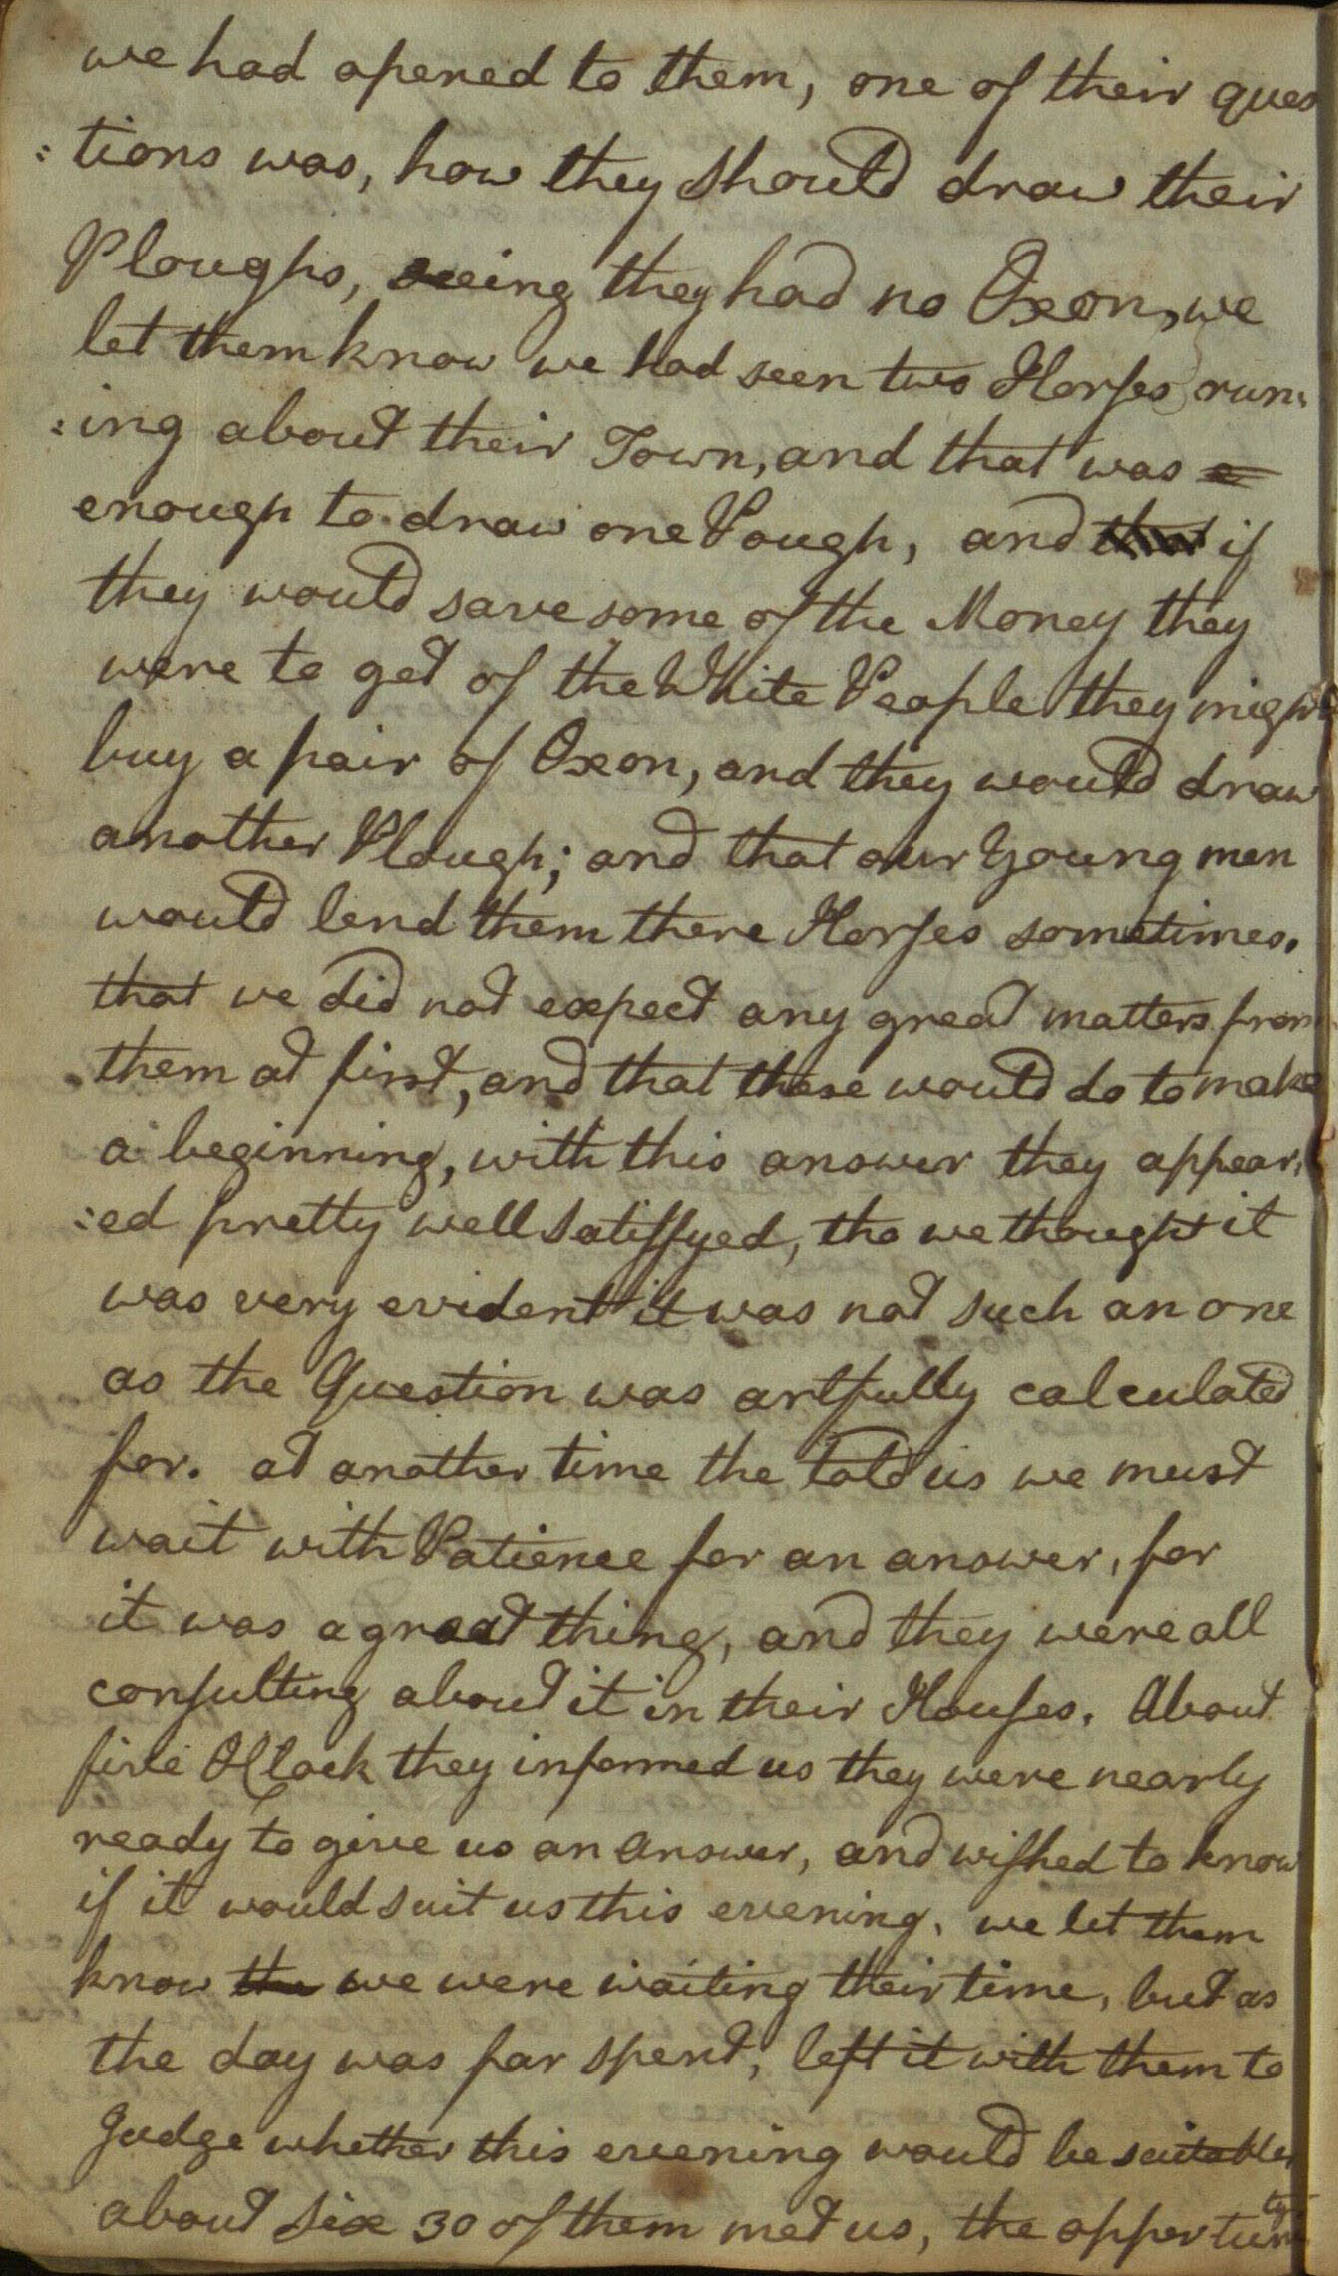 we had opened to them, one of their ques
:tions was, how they should draw their
Ploughs, seeing they had no Oxon, we
let them know we had seen two Horses run:
:ing about their Town, and that was a
enough to draw one Pough, and that if
they would save some of the Money they
were to get of the White People they might
buy a pair of Oxon, and they would draw
another Plough; and that our Young men
would lend them there Horses sometimes.
that we did not expect any great matters from
them at first, and that these would do to make
a beginning, with this answer they appear,
:ed pretty well Satisfyed, tho we thought it
was very evident it was not such an one
as the Question was artfully calculated
for. at another time the told us we must
wait with Patience for an answer, for
it was a great thing, and they were all
consulting about it in their Houses. About
five OClock they informed us they were nearly
ready to give us an Answer, and wished to know
if it would suit us this evening. we let them
know the we were waiting their time, but as
the day was far spent, left it with them to
Judge whether this evening would be suitable
about six 30 of them met us, the opportunity